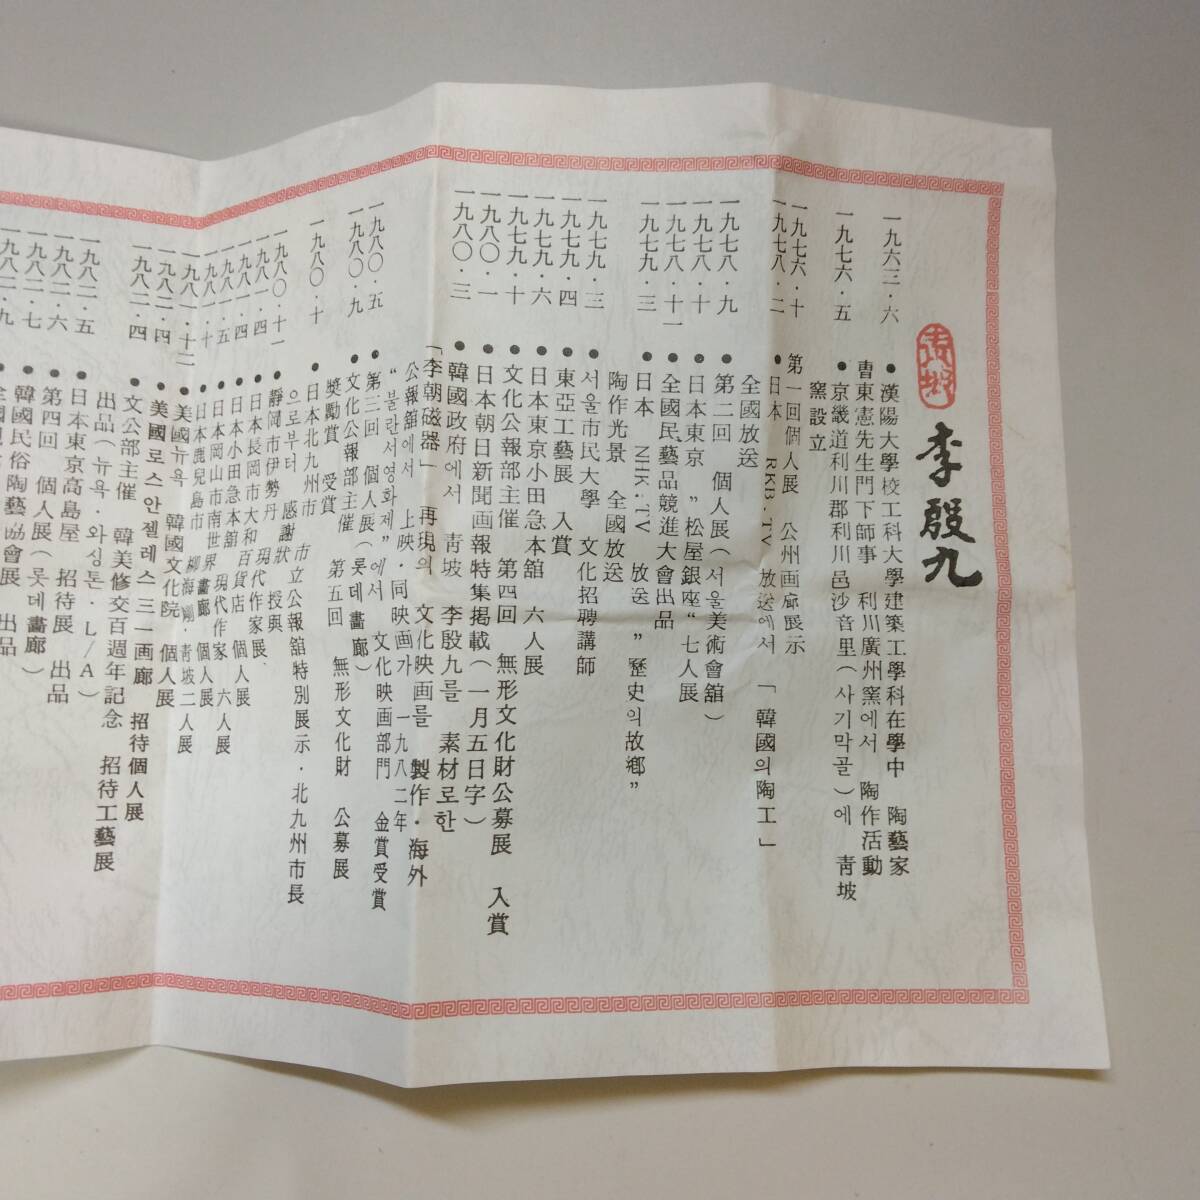 李殷九
一九六三・六 ●漢陽大學校工科大學建築工學科在學中 陶藝家
曺東憲先生門下師事 利川廣州窯에서 陶作活動
一九七六・五 ●京畿道利川郡利川邑沙音里(사기막골)에 靑坡
窯設立
一九七六・十 第一回個人展 公州画廊展示
一九七八・二 ●日本 RKB・TV 放送에서 「韓國의陶工」
全國放送
一九七八・九 ●第二回 個人展(서울美術會舘)
一九七八・十 ●日本東京 ”松屋銀座“七人展
一九七八・十一 ●全國民藝品競進大會出品
一九七九・三 ●日本 NHK・TV 放送 ”歷史의故鄕”
陶作光景 全國放送
一九七九・三 ●서울市民大學 文化招聘講師
一九七九・四 ●東亞工藝展 入賞
一九七九・六 ●日本東京小田急本舘 六人展
一九七九・十 ●文化公報部主催 第四回 無形文化財公募展 入賞
一九八〇・一 ●日本朝日新聞画報特集掲載(一月五日字)
一九八〇・三 ●韓國政府에서 靑坡 李殷九를 素材로한
「李朝磁器」再現의 文化映画를 製作・海外
公報舘에서 上映・同映画가 一九八二年
“불란서영화제”에서 文化映画部門 金賞受賞
一九八〇・五 ●第三回 個人展(롯데畫廊)
一九八〇・九 ●文化公報部主催 第五回 無形文化財 公募展
奬勵賞 受賞
一九八〇・十 ●日本北九州市 市立公報舘特別展示・北九州市長
으로부터 感謝狀 授與
一九八〇・十一 ●靜岡市伊勢丹 現代作家展
一九八一・四 ●日本長岡市大和百貨店 個人展
一九八一・四 ●日本小田急本舘 現代作家 六人展
一九八一・五 ●日本岡山市南世界畫廊 個人展
一九八一・十 ●日本鹿兒島市 柳海剛・靑坡二人展
一九八一・十二 ●美國뉴욕 韓國文化院 個人展
一九八二・四 ●美國로스안젤레스三一画廊 招待個人展
一九八二・四 ●文公部主催 韓美修交百週年記念 招待工藝展
出品(뉴욕・와싱톤・L/A)
一九八二・五 ●日本東京高島屋 招待展 出品
一九八二・六 ●第四回 個人展(롯데畫廊)
一九八二・七 ●韓國民俗陶藝協會展 出品
一九八二・九